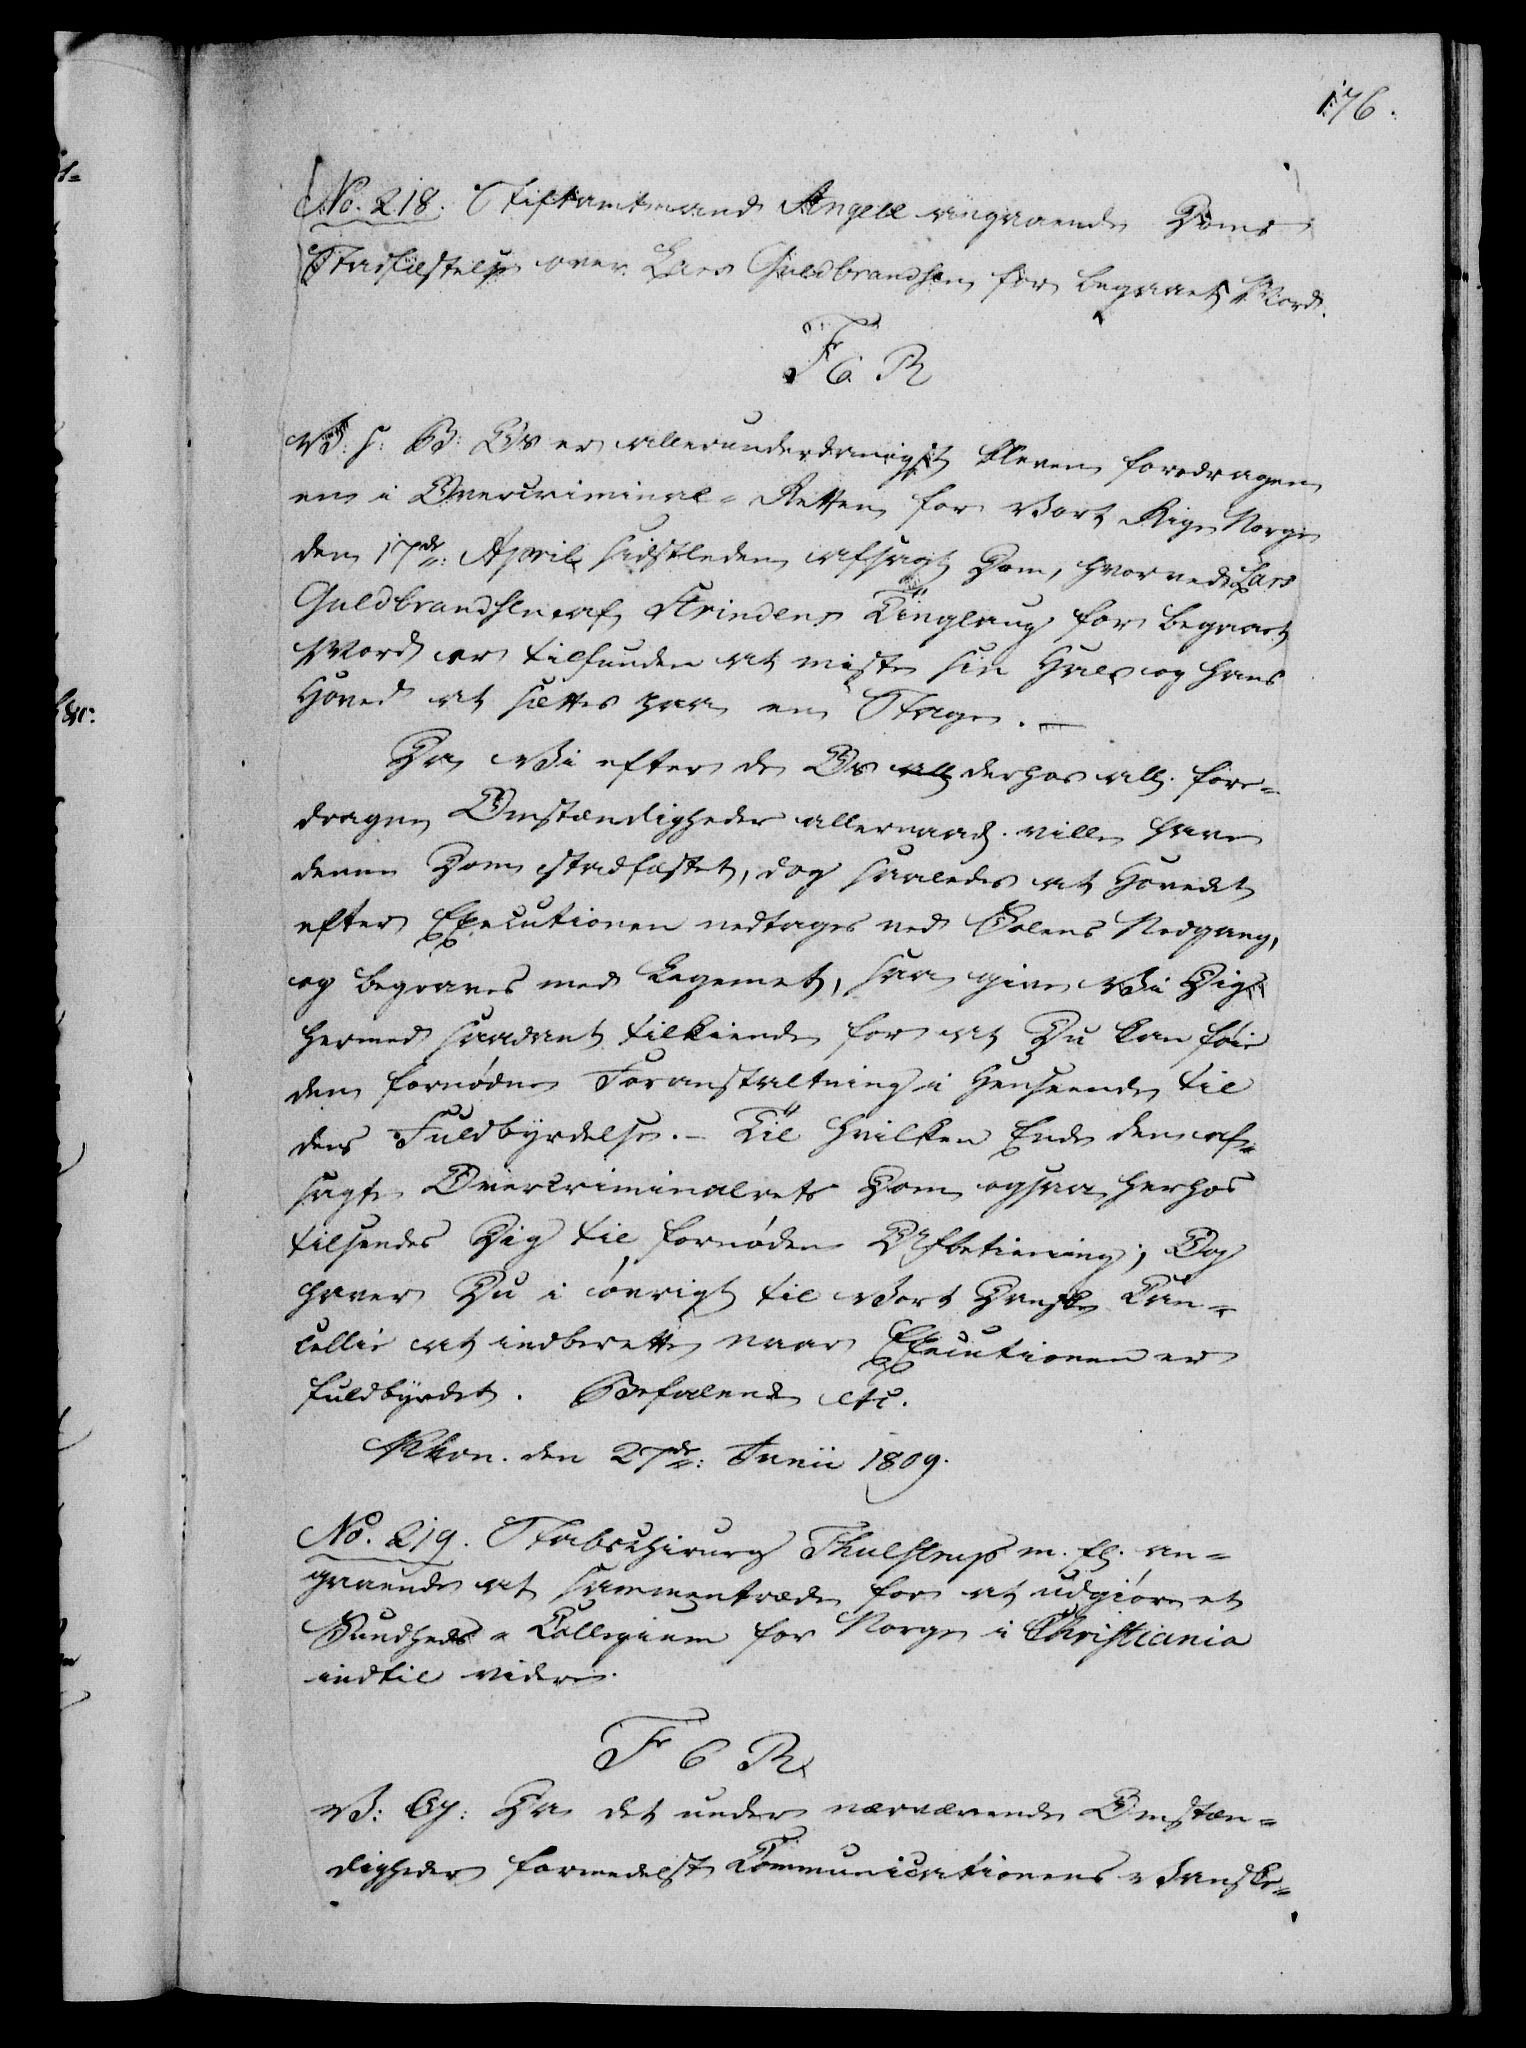 176.
No. 218. Stiftamtmand Angell angaaende Doms
Stadfæstelse over Lars Guldbrandsen for begaaet Mord.
F 6 R
V: s: B: Os er allerunderdanigst bleven foredragen
en i Overcriminal-Retten for Vort Rige Norge
den 17de: April sidstleden afsagt Dom, hvorved Lars
Guldbrandsen af Strindens Tinglaug for begaaet
Mord er tilfunden at miste sin Hals og hans
Hoved at sættes paa en Stage. —
Da Vi efter de Os all derhos all. fore-
dragne Omstændigheder allernaad. ville have
denne Dom stadfæstet, dog saaledes at Hovedet
efter Executionen nedtages ved Solens Nedgang,
og begraves med Legemet, saa give Vi Dig
hermed saadant tilkiende for at Du kan føie
den fornødne Foranstaltning i Henseende til
dens Fuldbyrdelse. – Til hvilken Ende den af-
sagte Overcriminalrets Dom ogsaa herhos
tilsendes Dig til fornøden Afbetiening; Og
haver Du i øvrigt til Vort Danske Can-
cellie at indberette naar Executionen er
fuldbyrdet. Befalende etc.
Khvn. den 27de: Junii 1809.
No. 219. Stabschirurg Thulstrup m. fl. an-
gaaende at sammentræde for at udgiøre et
Sundheds-Collegium for Norge i Christiania
indtil videre.
F 6 R
V: G: Da det under nærværende Omstæn-
digheder formedelst Communicationens Vanske-